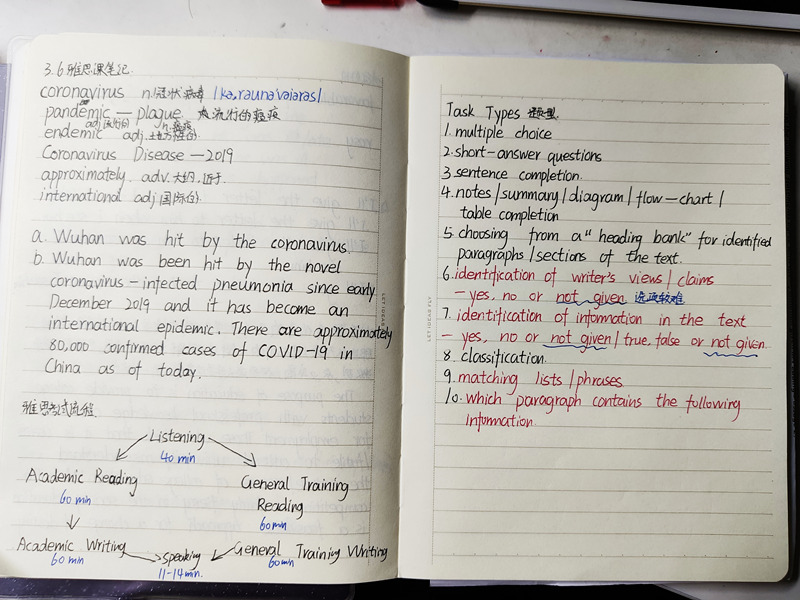 3.6雅思课笔记
coronavirus n.冠状病毒 /kə,raunə'vaiərəs/
pandemic — plague 大流行的瘟疫
adj.流行的 n.瘟疫
endemic adj.地方性的
Coronavirus Disease — 2019
approximately. adv.大约,近于.
international adj.国际的
a. Wuhan was hit by the coronavirus.
b. Wuhan was been hit by the novel
coronavirus - infected pneumonia since early
December 2019 and it has become an
international epidemic. There are approximately
80,000 confirmed cases of COVID-19 in
China as of today.
雅思考试流程.
Listening
40 min
Academic Reading
60 min
General Training
Reading
60 min
Academic Writing
60 min
Speaking
11-14 min.
General Training Writing
60 min
Task Types 题型
1. multiple choice
2. short-answer questions
3. sentence completion.
4. notes / summary / diagram / flow-chart /
table completion
5. choosing from a "heading bank" for identified
paragraphs / sections of the text.
6. identification of writer's views / claims
- yes, no or not given 选项较难
7. identification of information in the text
- yes, no or not given / true, false or not given.
8. classification.
9. matching lists / phrases
10. which paragraph contains the following
information.